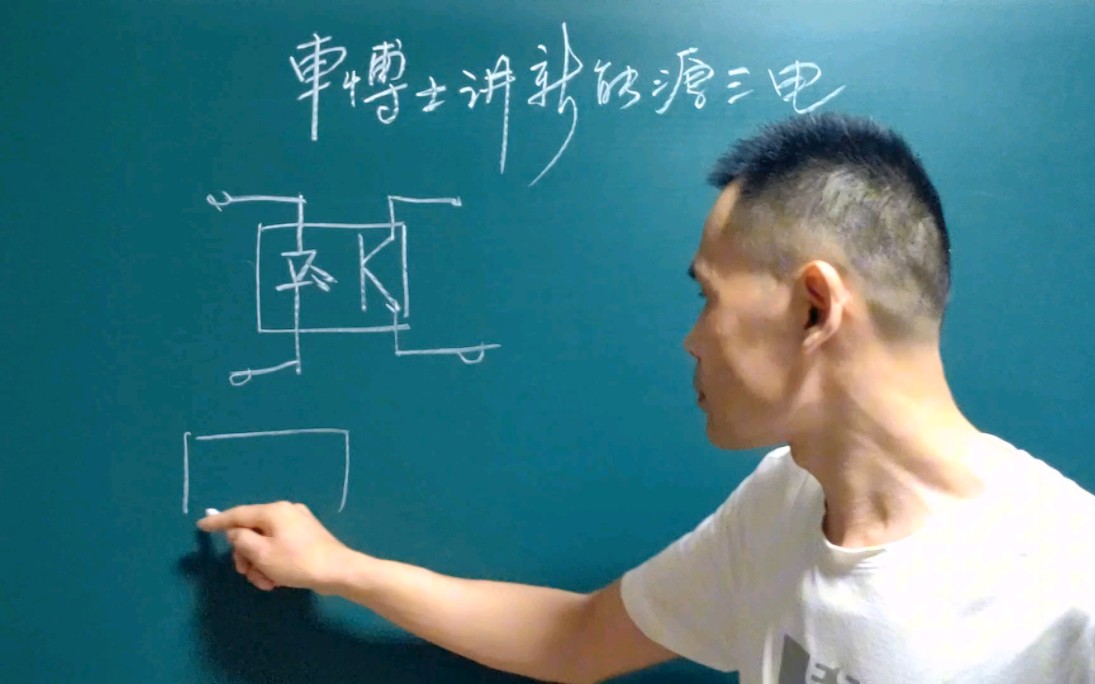 車博士讲新能源三电
ES